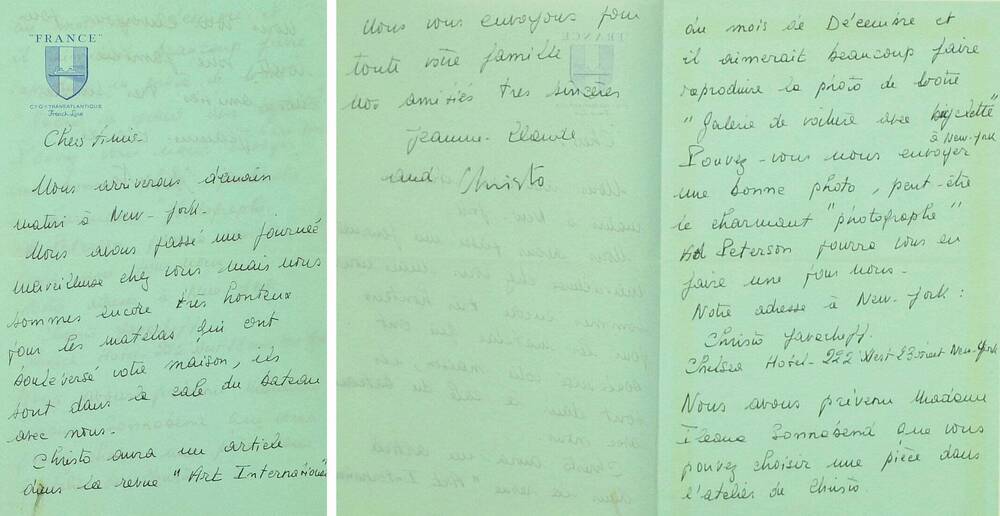 "FRANCE"
Cie Gle TRANSATLANTIQUE
French Line
Chers Amis
Nous arriverons demain
matin à New-York.
Nous avons passé une journée
merveilleuse chez vous mais nous
sommes encore très honteux
pour les matelas qui ont
bouleversé votre maison, ils
sont dans la cale du bateau
avec nous.
Christo aura un article
dans la revue "Art International"
du mois de Décembre et
il aimerait beaucoup faire
reproduire la photo de votre
"Galerie de voiture avec bicyclette"
à New-York
Pouvez-vous nous envoyer
une bonne photo, peut-être
le charmant "photographe"
Ad Peterson pourra vous en
faire une pour nous.
Notre adresse à New-York :
Christo Javacheff.
Chelsea Hotel - 222 West 23 street New-York
Nous avons prévenu Madame
Ileana Sonnabend que vous
pouvez choisir une pièce dans
l'atelier de Christo.
Nous vous envoyons pour
toute votre famille
nos amitiés très sincères
Jeanne-Claude
and Christo